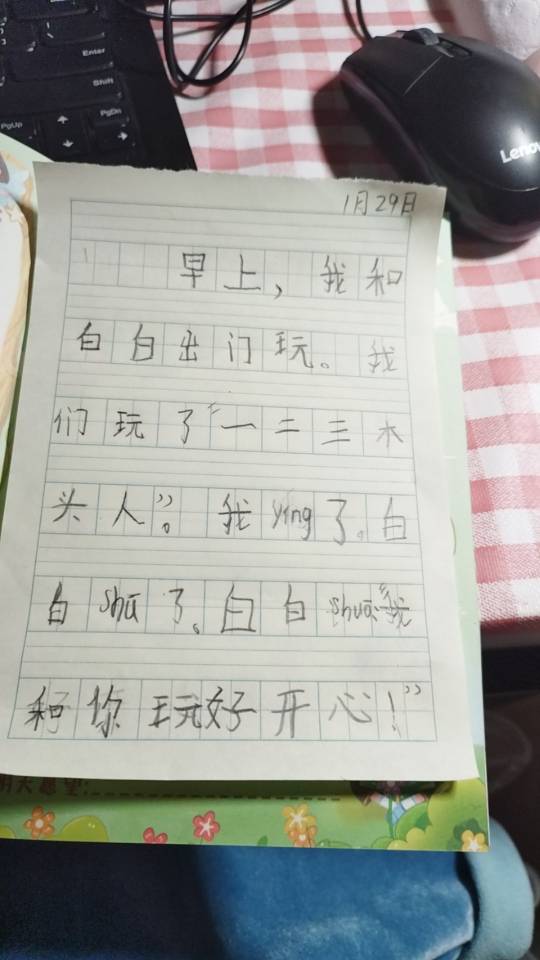 Enter
Shift
PgUp
PgDn
Lenov
1月29日
早上，我和
白白出门玩。我
们玩了“一二三木
头人”。我ying了。白
白shū了。白白shuō:“我
和你玩好开心！”